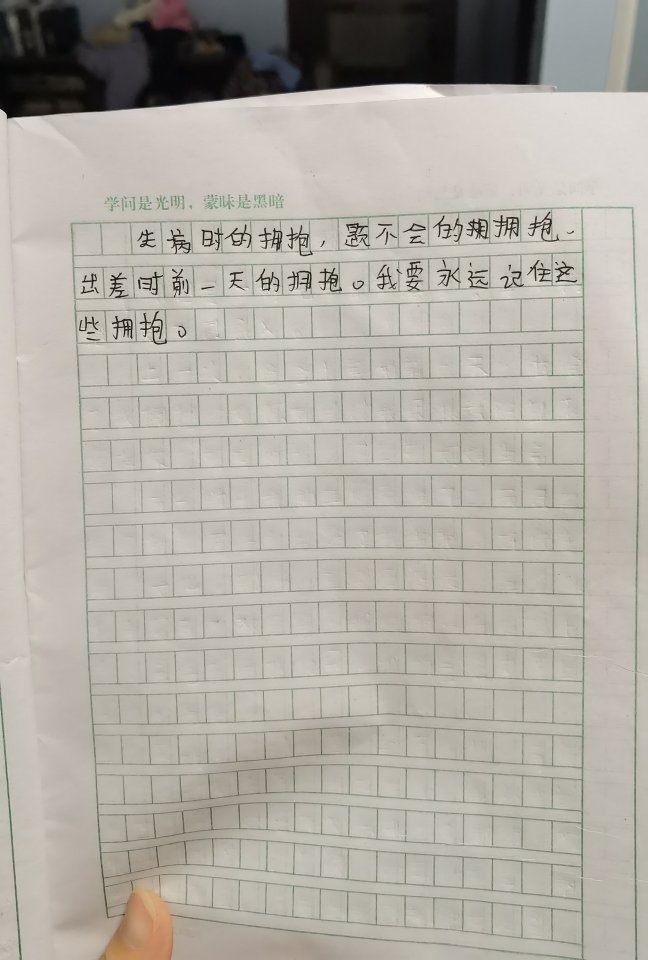 学问是光明，蒙昧是黑暗
生病时的拥抱，题不会的拥拥抱、
出差时前一天的拥抱。我要永远记住这
些拥抱。